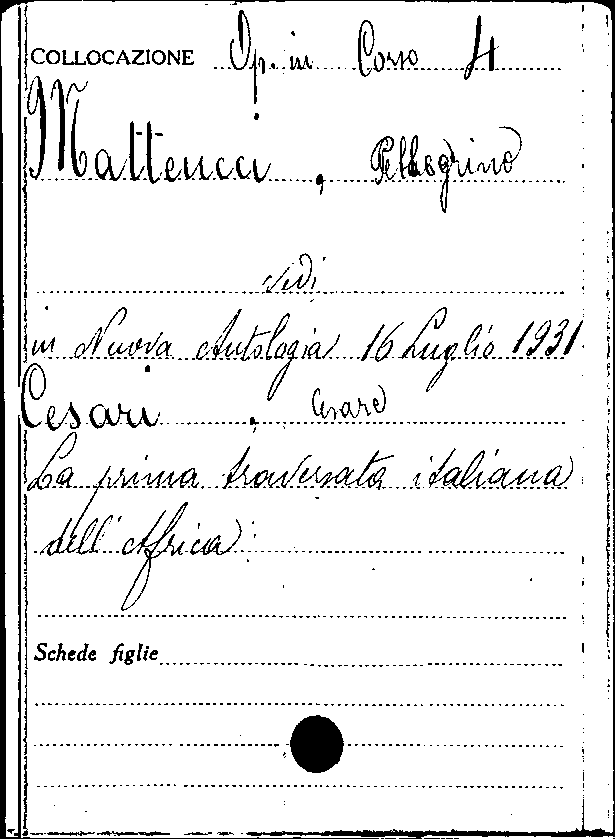 COLLOCAZIONE Op. in Corso 4
Matteucci, Pellegrino
vedi
in Nuova Antologia 16 Luglio 1931
Cesari, Cesare
La prima traversata italiana
dell'Africa
Schede figlie